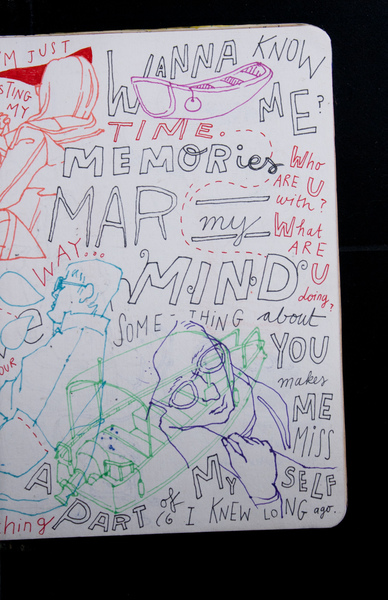 I'M JUST
WANNA KNOW
STING
MY
ME?
TIME.
MEMORies
Who
ARE U
with?
MAR my
What
ARE
U
doing?
WAY...
MIND
SOME-THING about
YOU
OUR
makes
ME
MISS
A MY SELF
thing PART of I KNEW LONG ago.